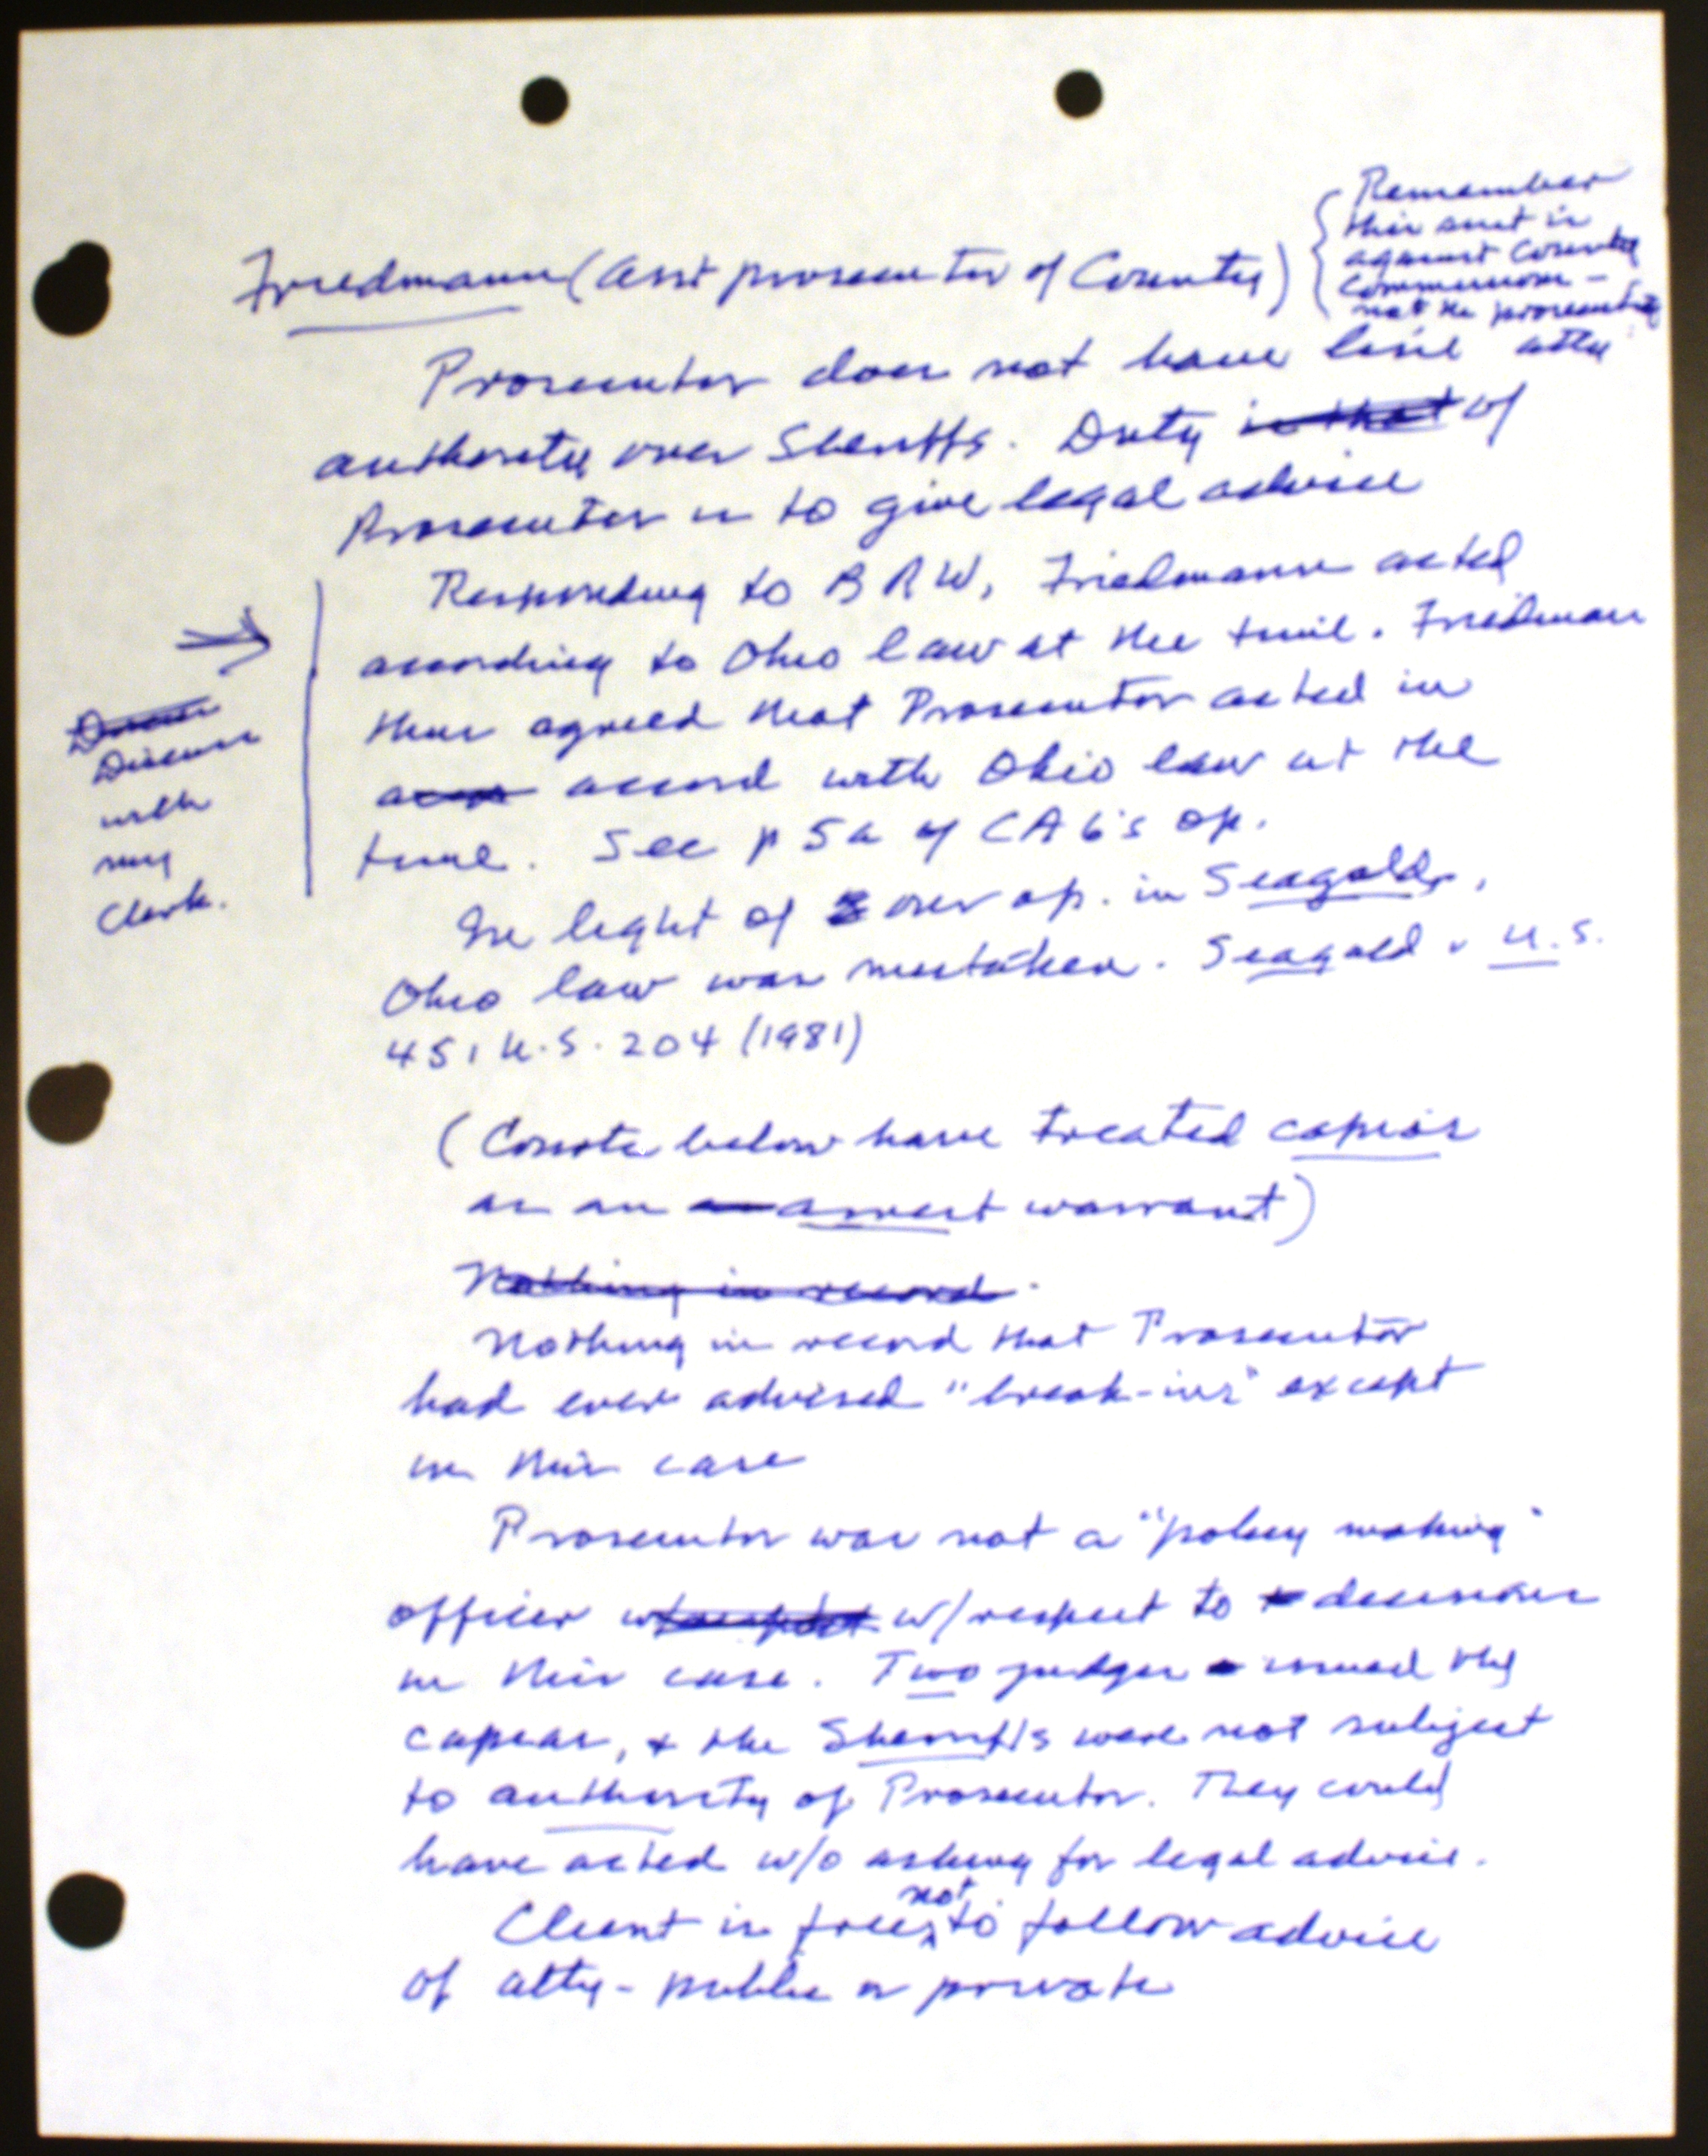 Friedmann (Asst prosecutor of County)
Remember
this suit is
against County
Commissioners -
not the prosecuting
atty
Prosecutor does not have line
authority over Sheriffs. Duty is that of
Prosecutor is to give legal advice
Responding to BRW, Friedmann acted
according to Ohio law at the time. Friedman
thus agreed that Prosecutor acted in
accord with Ohio law at the
time. See p 5a of CA 6's op.
Discuss
with
my
Clerk.
In light of our op. in Seagald,
Ohio law was mistaken. Seagald v U.S.
451 U.S. 204 (1981)
(Courts below have treated capias
as an arrest warrant)
Nothing in record.
Nothing in record that Prosecutor
had ever advised "break-ins" except
in this case
Prosecutor was not a "policy making"
officer w/respect to decisions
in this case. Two judges issued the
capias, & the Sheriffs were not subject
to authority of Prosecutor. They could
have acted w/o asking for legal advice.
Client is free not to follow advice
of atty - public or private